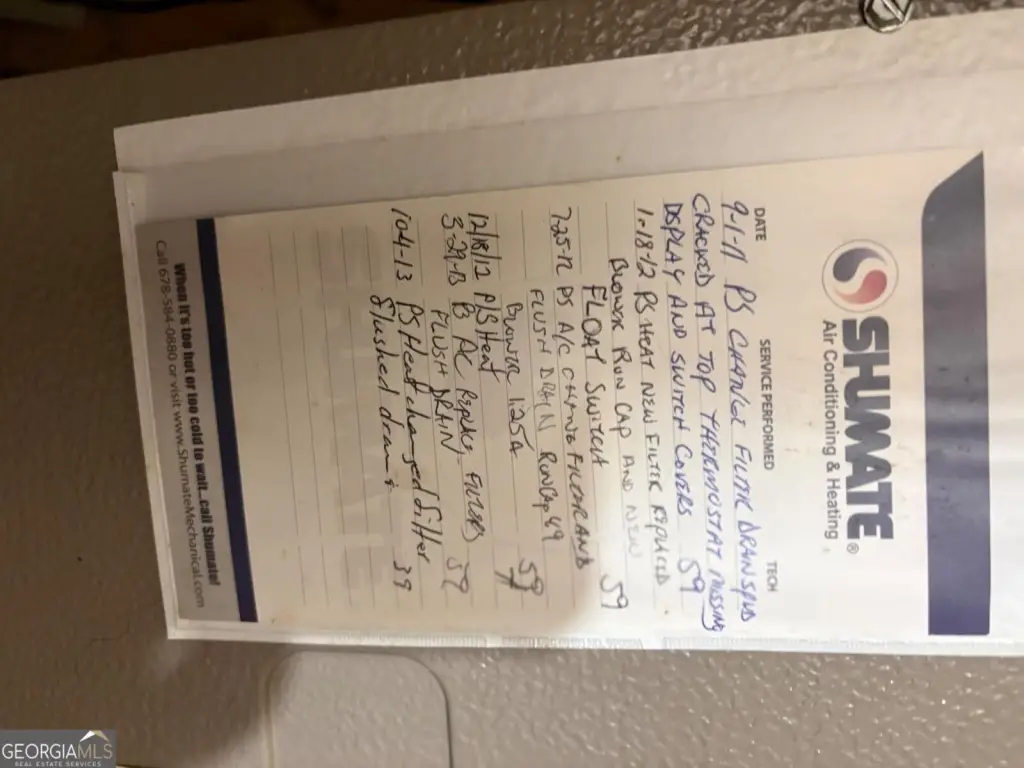 SHUMATE®
Air Conditioning & Heating
DATE SERVICE PERFORMED TECH
9-1-11 PS CHANGE FILTER DRAIN
CRACKED AT TOP THERMOSTAT MISSING
DISPLAY AND SWITCH COVERS 59
1-18-12 PS HEAT NEW FILTER REPLACED
BLOWER RUN CAP AND NEW
FLOAT SWITCH 59
7-25-12 PS A/C CHANG FILTER AND
FLUSH DRAIN RUNCap 49
Blower 1.25A 59
12/18/12 P/S Heat
3-29-13 PS AC FILTERS
FLUSH DRAIN 59
10-4-13 PS Heat changed filter
flushed drain 39
When it's too hot or too cold to wait...call Shumate!
Call 678-584-0880 or visit www.ShumateMechanical.com
GEORGIAMLS
REAL ESTATE SERVICES